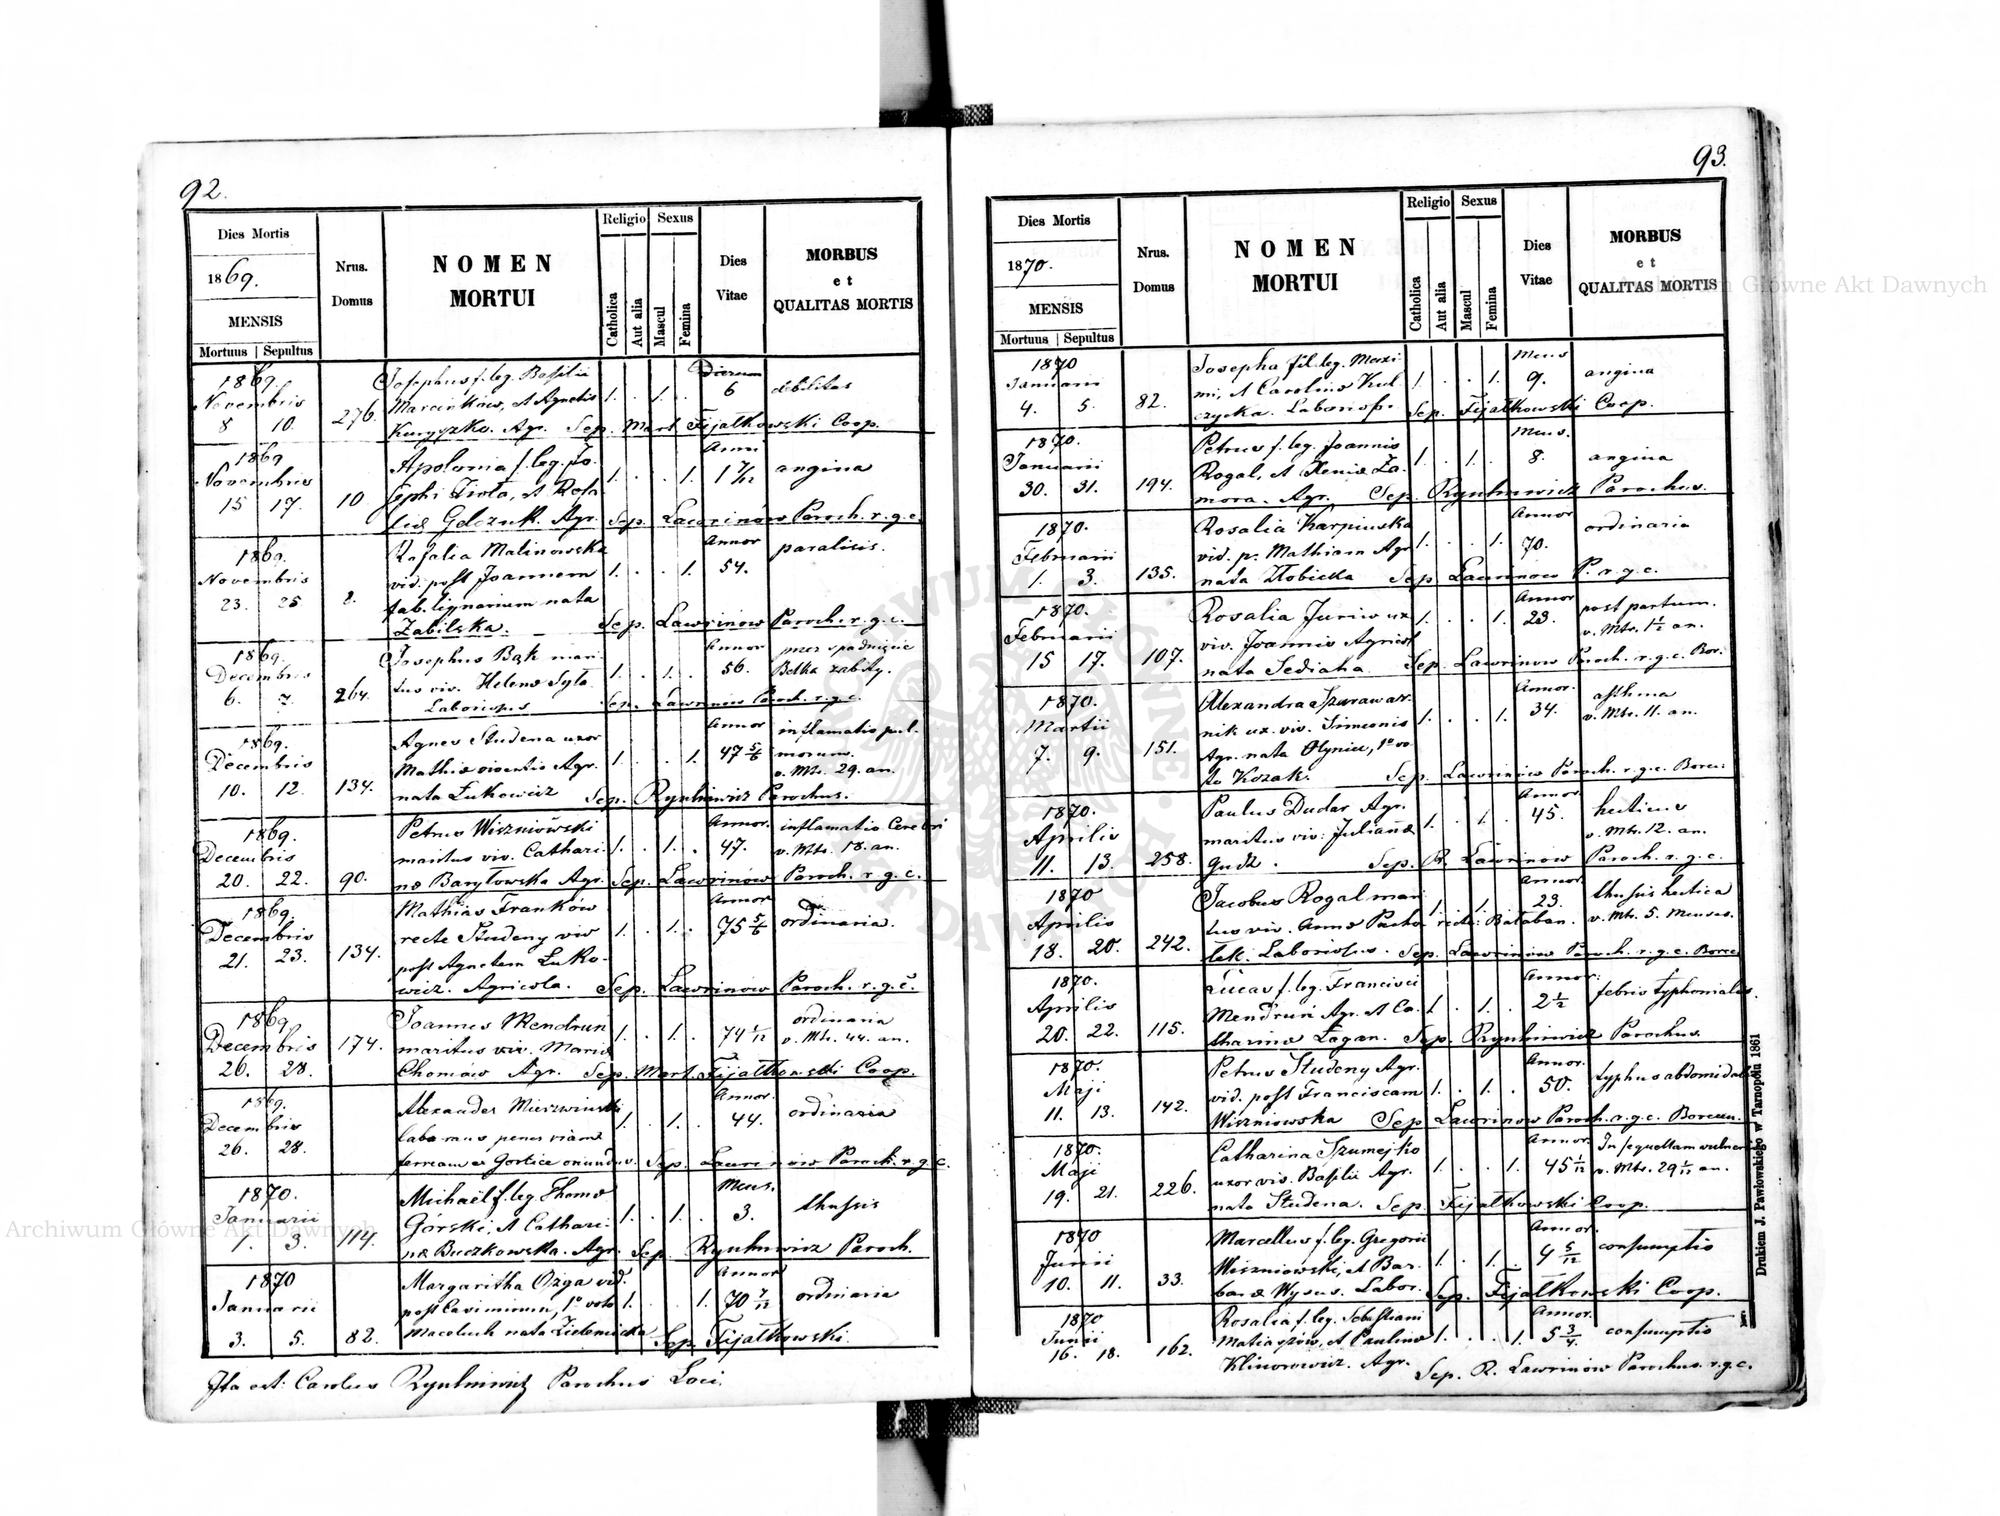 92.
Dies Mortis
1869.
MENSIS
Mortuus | Sepultus
Nrus.
Domus
NOMEN
MORTUI
Religio
Catholica
Aut alia
Sexus
Mascul
Femina
Dies
Vitae
MORBUS
et
QUALITAS MORTIS
1869.
Novembris
8 10.
276.
Josephus f. leg. Basilii
Marcinków, et Agnetis
Agr. Sep. Mart. Fijałkowski Coop.
1. . 1. .
Dierum
6
debilitas
1869
Novembris
15 17.
10
Apolonia f. leg. Jo-
sephi Zioła, et Rosa-
liæ Gelczuk. Agr. Sep. Lawrinów Paroch. r. g. c.
1. . . 1.
Anni
1 7/12
angina
1869.
Novembris
23. 25
2.
Rosalia Malinowska
vid. post Joannem
fab. lignarium nata
Zabilska. Sep. Lawrinow Paroch. r. g. c.
1. . . 1.
Annor
54.
paralisis.
1869.
Decembris
6. 7.
264.
Josephus Bąk mari-
tus viv. Helenæ Syta
Laboriosus Sep. Lawrinów Paroch. r. g. c.
1. . 1. .
Annor
56.
przez spadnięcie
Belka zabity.
1869.
Decembris
10. 12.
134.
Agnes Studena uxor
Mathiæ viventis Agr.
nata Łukowicz Sep. Rynkiewicz Parochus.
1. . . 1.
Annor
47 5/6
inflamatio pul-
monum.
v. Mtr. 29. an.
1869.
Decembris
20. 22.
90.
Petrus Wiszniowski
maritus viv. Cathari-
næ Baryłowska Agr. Sep. Lawrinów Paroch. r. g. c.
1. . 1. .
Annor.
47.
inflamatio Cerebri
v. Mtr. 18. an.
1869.
Decembris
21. 23.
134.
Mathias Franków
recte Studeny viv
post Agnetem Łuko-
wicz. Agricola. Sep. Lawrinow Paroch. r. g. c.
1. . 1. .
Annor
75 5/6
ordinaria.
1869
Decembris
26. 28.
174.
Joannes Mendrun
maritus viv. Mariæ
Chomów Agr. Sep. Mart. Fijałkowski Coop.
1. . 1. .
74 1/12
ordinaria
v. Mtr. 44. an.
1869.
Decembris
26. 28.
Alexander
laborans penes viam
ferream ex Gorlice oriundus. Sep. Lawrinów Paroch. r. g. c.
1. . 1. .
Annor.
44.
ordinaria
1870.
Januarii
1. 3.
114.
Michaël f. leg Thomæ
Górski, et Cathari-
næ Buczkowska. Agr. Sep. Rynkiewicz Paroch.
1. . 1. .
Mens.
3.
thussis
1870
Januarii
3. 5.
82.
Margaritha Ozga vid.
post Casimirum, 1º voto
nata Sep. Fijałkowski.
1. . . 1.
Annor
70 7/12
ordinaria
Ita est: Carolus Rynkiewicz Parochus Loci.
93.
Dies Mortis
1870.
MENSIS
Mortuus | Sepultus
Nrus.
Domus
NOMEN
MORTUI
Religio
Catholica
Aut alia
Sexus
Mascul
Femina
Dies
Vitae
MORBUS
et
QUALITAS MORTIS
1870
Januarii
4. 5.
82.
Josepha fil. leg. Maxi-
mi, et Carolinæ Kul-
czycka. Laborios. Sep. Fijałkowski Coop.
1. . . 1.
Mens
9.
angina
1870.
Januarii
30. 31.
194.
Petrus f. leg. Joannis
Rogal, et Xeniæ Za-
mora. Agr. Sep. Rynkiewicz Parochus.
1. . 1. .
Mens.
8.
angina
1870.
Februarii
1. 3.
135.
Rosalia Karpinska
vid. p. Mathiam Agr
nata Złobicka Sep Lawrinow P. r. g. c.
1. . . 1.
Annor
70.
ordinaria
1870.
Februarii
15 17.
107.
Rosalia Juriw ux
viv. Joannis Agricol
nata Sediaha. Sep. Lawrinow Paroch. r. g. c. Bor.
1. . . 1.
Annor
23.
post partum.
v. Mtr. 1 1/2 an.
1870.
Martii
7. 9.
151.
Alexandra
nik ux. viv. Simeonis
Agr. nata Olyniec, 1º vo-
to Kozak. Sep. Lawrinów Paroch. r. g. c. Borec.
1. . . 1.
Annor.
34.
asthma
v. Mtr. 11. an.
1870.
Aprilis
11. 13.
258.
Paulus Dudar Agr.
maritus viv. Julianæ
Gudz. Sep. R. Lawrinow Paroch. r. g. c.
1. . 1. .
Annor
45.
hecticus
v. Mtr. 12. an.
1870
Aprilis
18. 20.
242.
Jacobus Rogal mari-
tus viv. Annæ recte: Bałaban.
Laboriosus. Sep. Lawrinow Paroch. r. g. c. Borec
1. . 1. .
Annor.
23.
thussis hectica
v. Mtr. 5. Menses.
1870.
Aprilis
20. 22.
115.
Lucas f. leg. Francisci
Mendrun Agr. et Ca-
tharinæ Łagan. Sep. Rynkiewicz Parochus.
1. . 1. .
Annor.
2 1/2
febris typhonialis.
1870.
Maji
11. 13.
142.
Petrus Studeny Agr.
vid. post Franciscam
Wiszniowska Sep Lawrinow Paroch. r. g. c. Borecen.
1. . 1. .
Annor.
50.
typhus abdominalis
1870.
Maji
19. 21.
226.
Catharina Szumejko
uxor viv. Basilii Agr.
nata Studena. Sep. Fijałkowski Coop.
1. . . 1.
Annor
45 1/12
In sequellam
v. Mtr. 29 1/2 an.
1870
Junii
10. 11.
33.
Marcellus f. leg. Gregorii
Wiszniówski, et Bar-
baræ Wysus. Labor. Sep. Fijałkowski Coop.
1. . 1. .
Annor.
4 5/12
consumptio
1870
Junii
16. 18.
162.
Rosalia f. leg. Sebastiani
Matiaszów, et Paulinæ
Klimowicz. Agr. Sep. R. Lawrinów Parochus. r. g. c.
1. . . 1.
Annor.
5 3/4.
consumptio
Drukiem J. Pawłowskiego w Tarnopolu 1861
Archiwum Główne Akt Dawnych
Archiwum Główne Akt Dawnych
ARCHIWUM GŁÓWNE AKT DAWNYCH